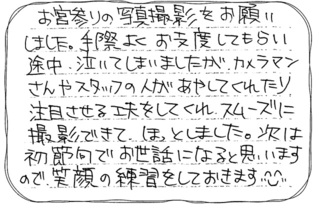 お宮参りの写真撮影をお願い
しました。手際よくお支度してもらい
途中、泣いてしまいましたが、カメラマン
さんやスタッフの人があやしてくれたり、
注目させる工夫をしてくれ、スムーズに
撮影できて、ほっとしました。次は
初節句でお世話になると思います
ので、笑顔の練習をしておきます